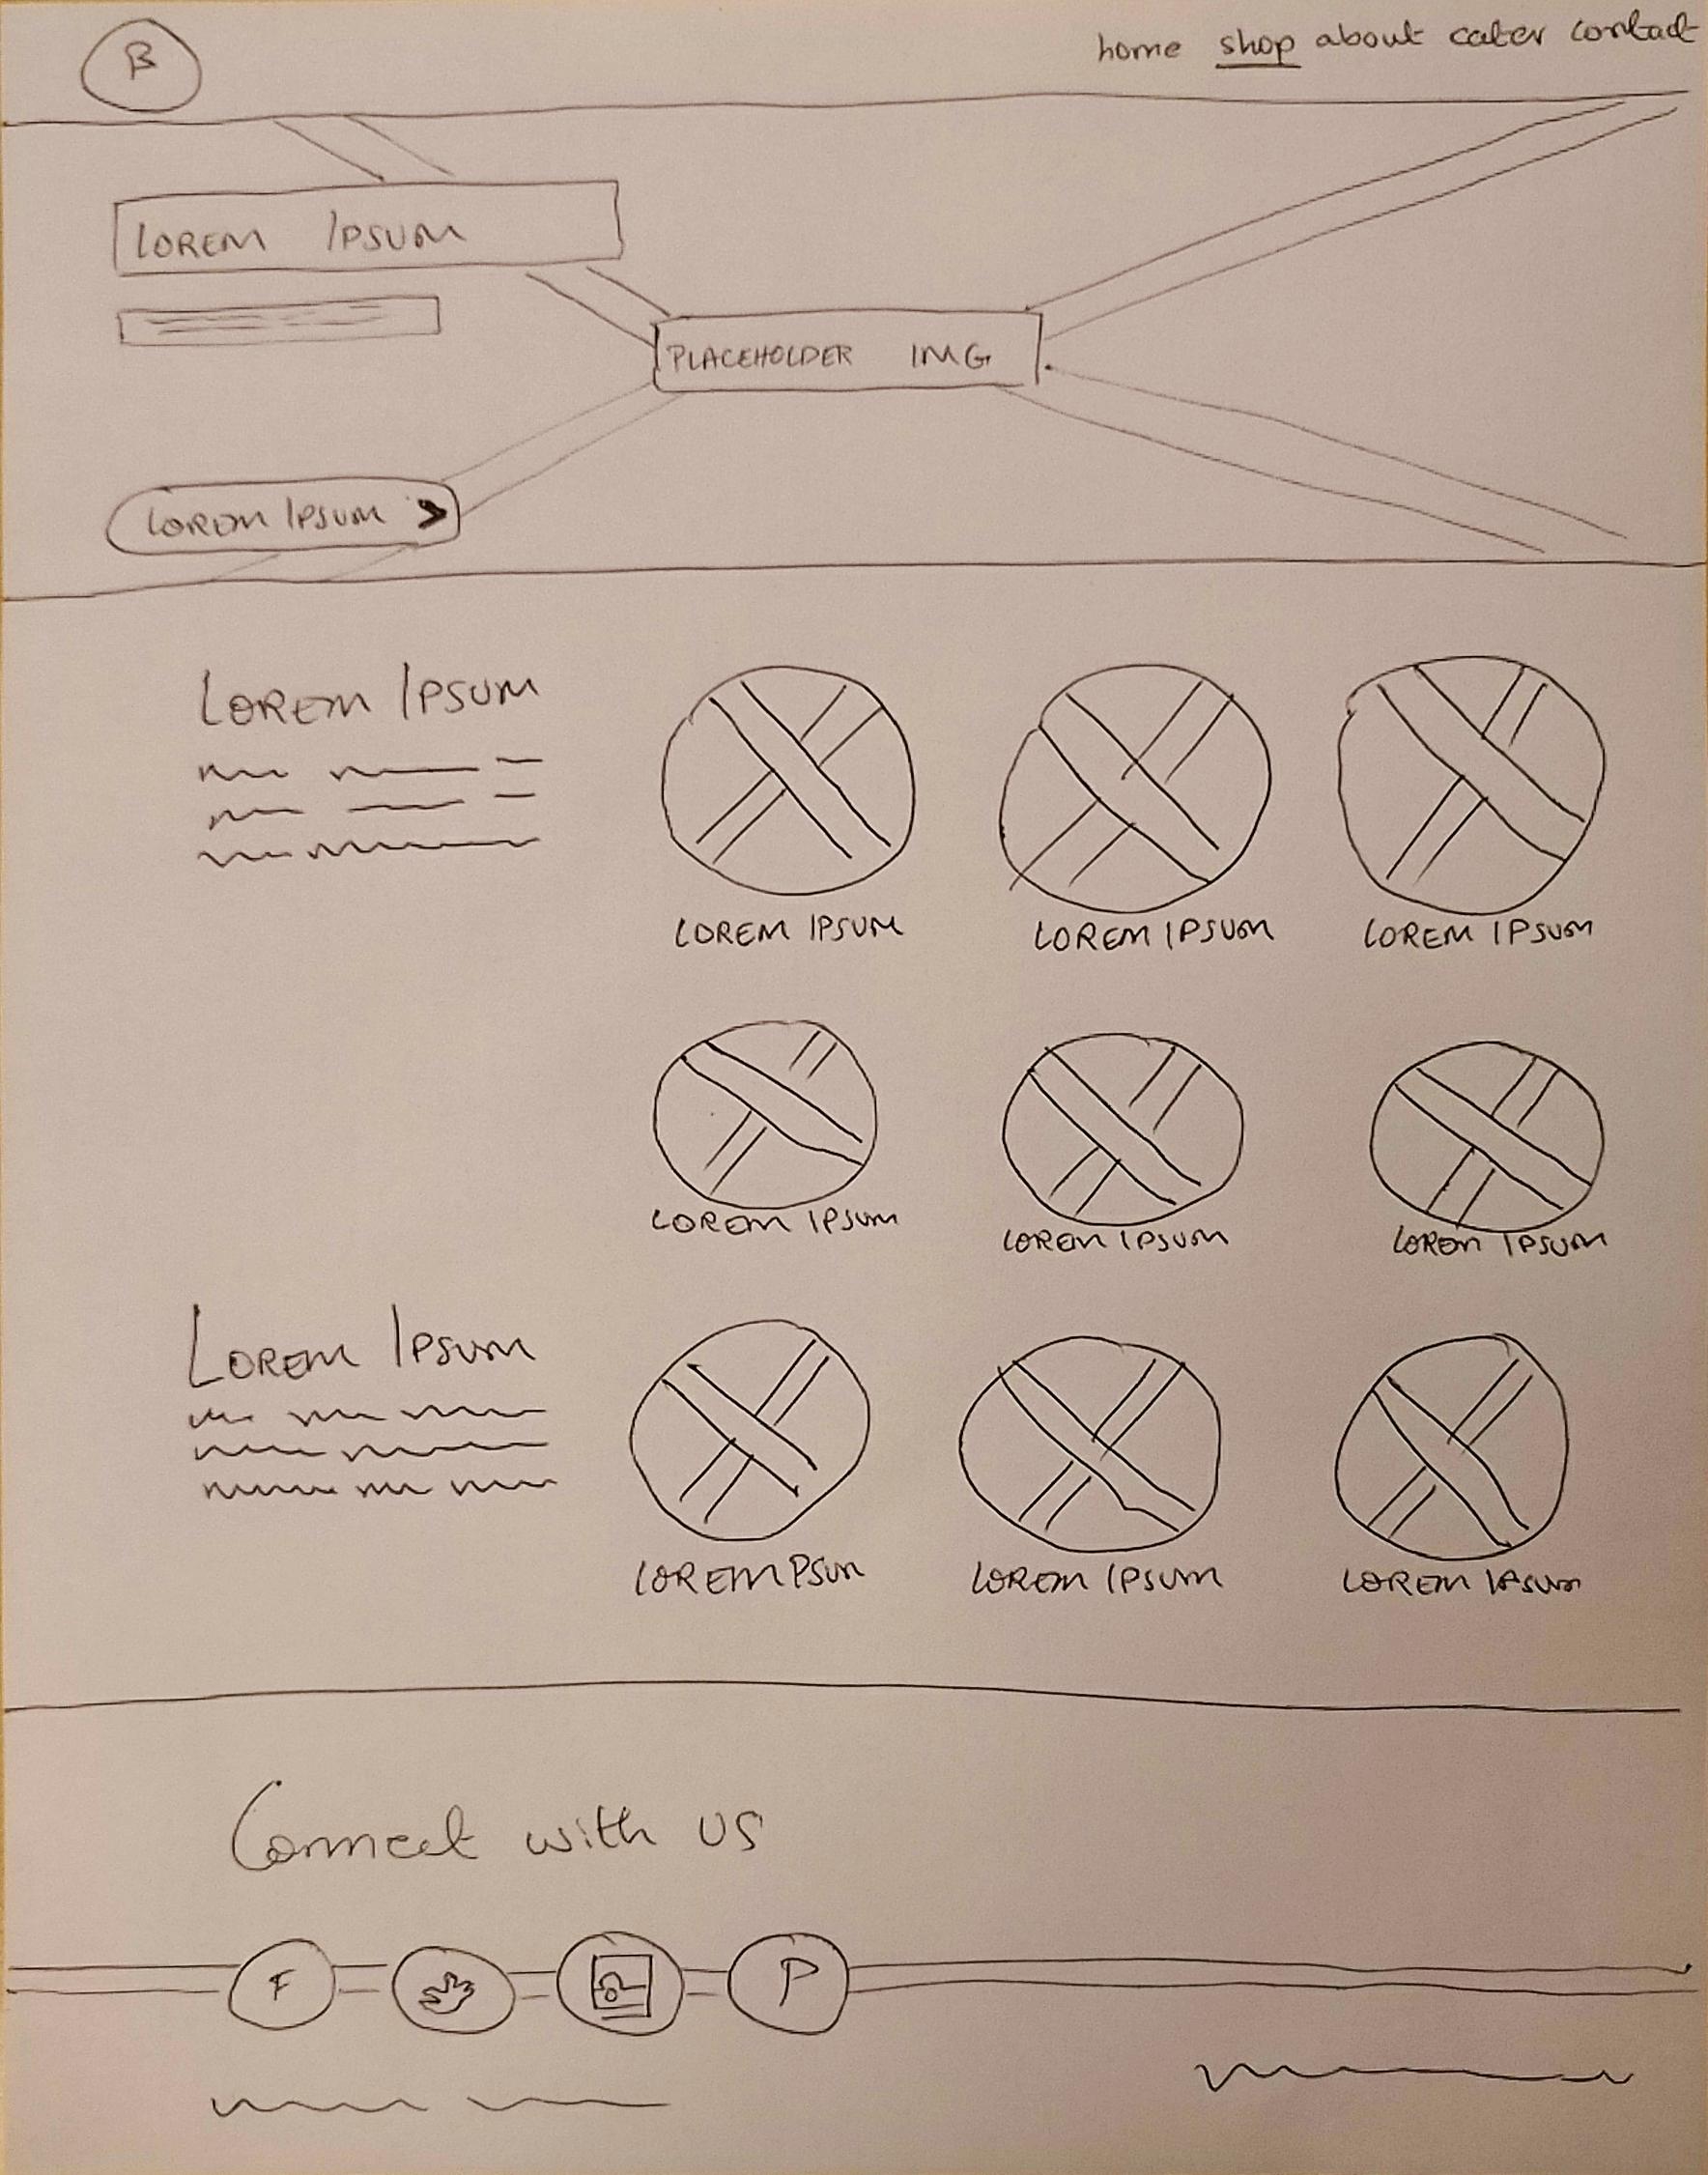 B
home shop about cater contact
LOREM IPSUM
PLACEHOLDER IMG
LOREM IPSUM >
LOREM IPSUM
LOREM IPSUM LOREM IPSUM LOREM IPSUM
LOREM IPSUM LOREM IPSUM LOREM IPSUM
LOREM IPSUM
LOREM PSUM LOREM IPSUM LOREM IPSUM
Connect with us
F P